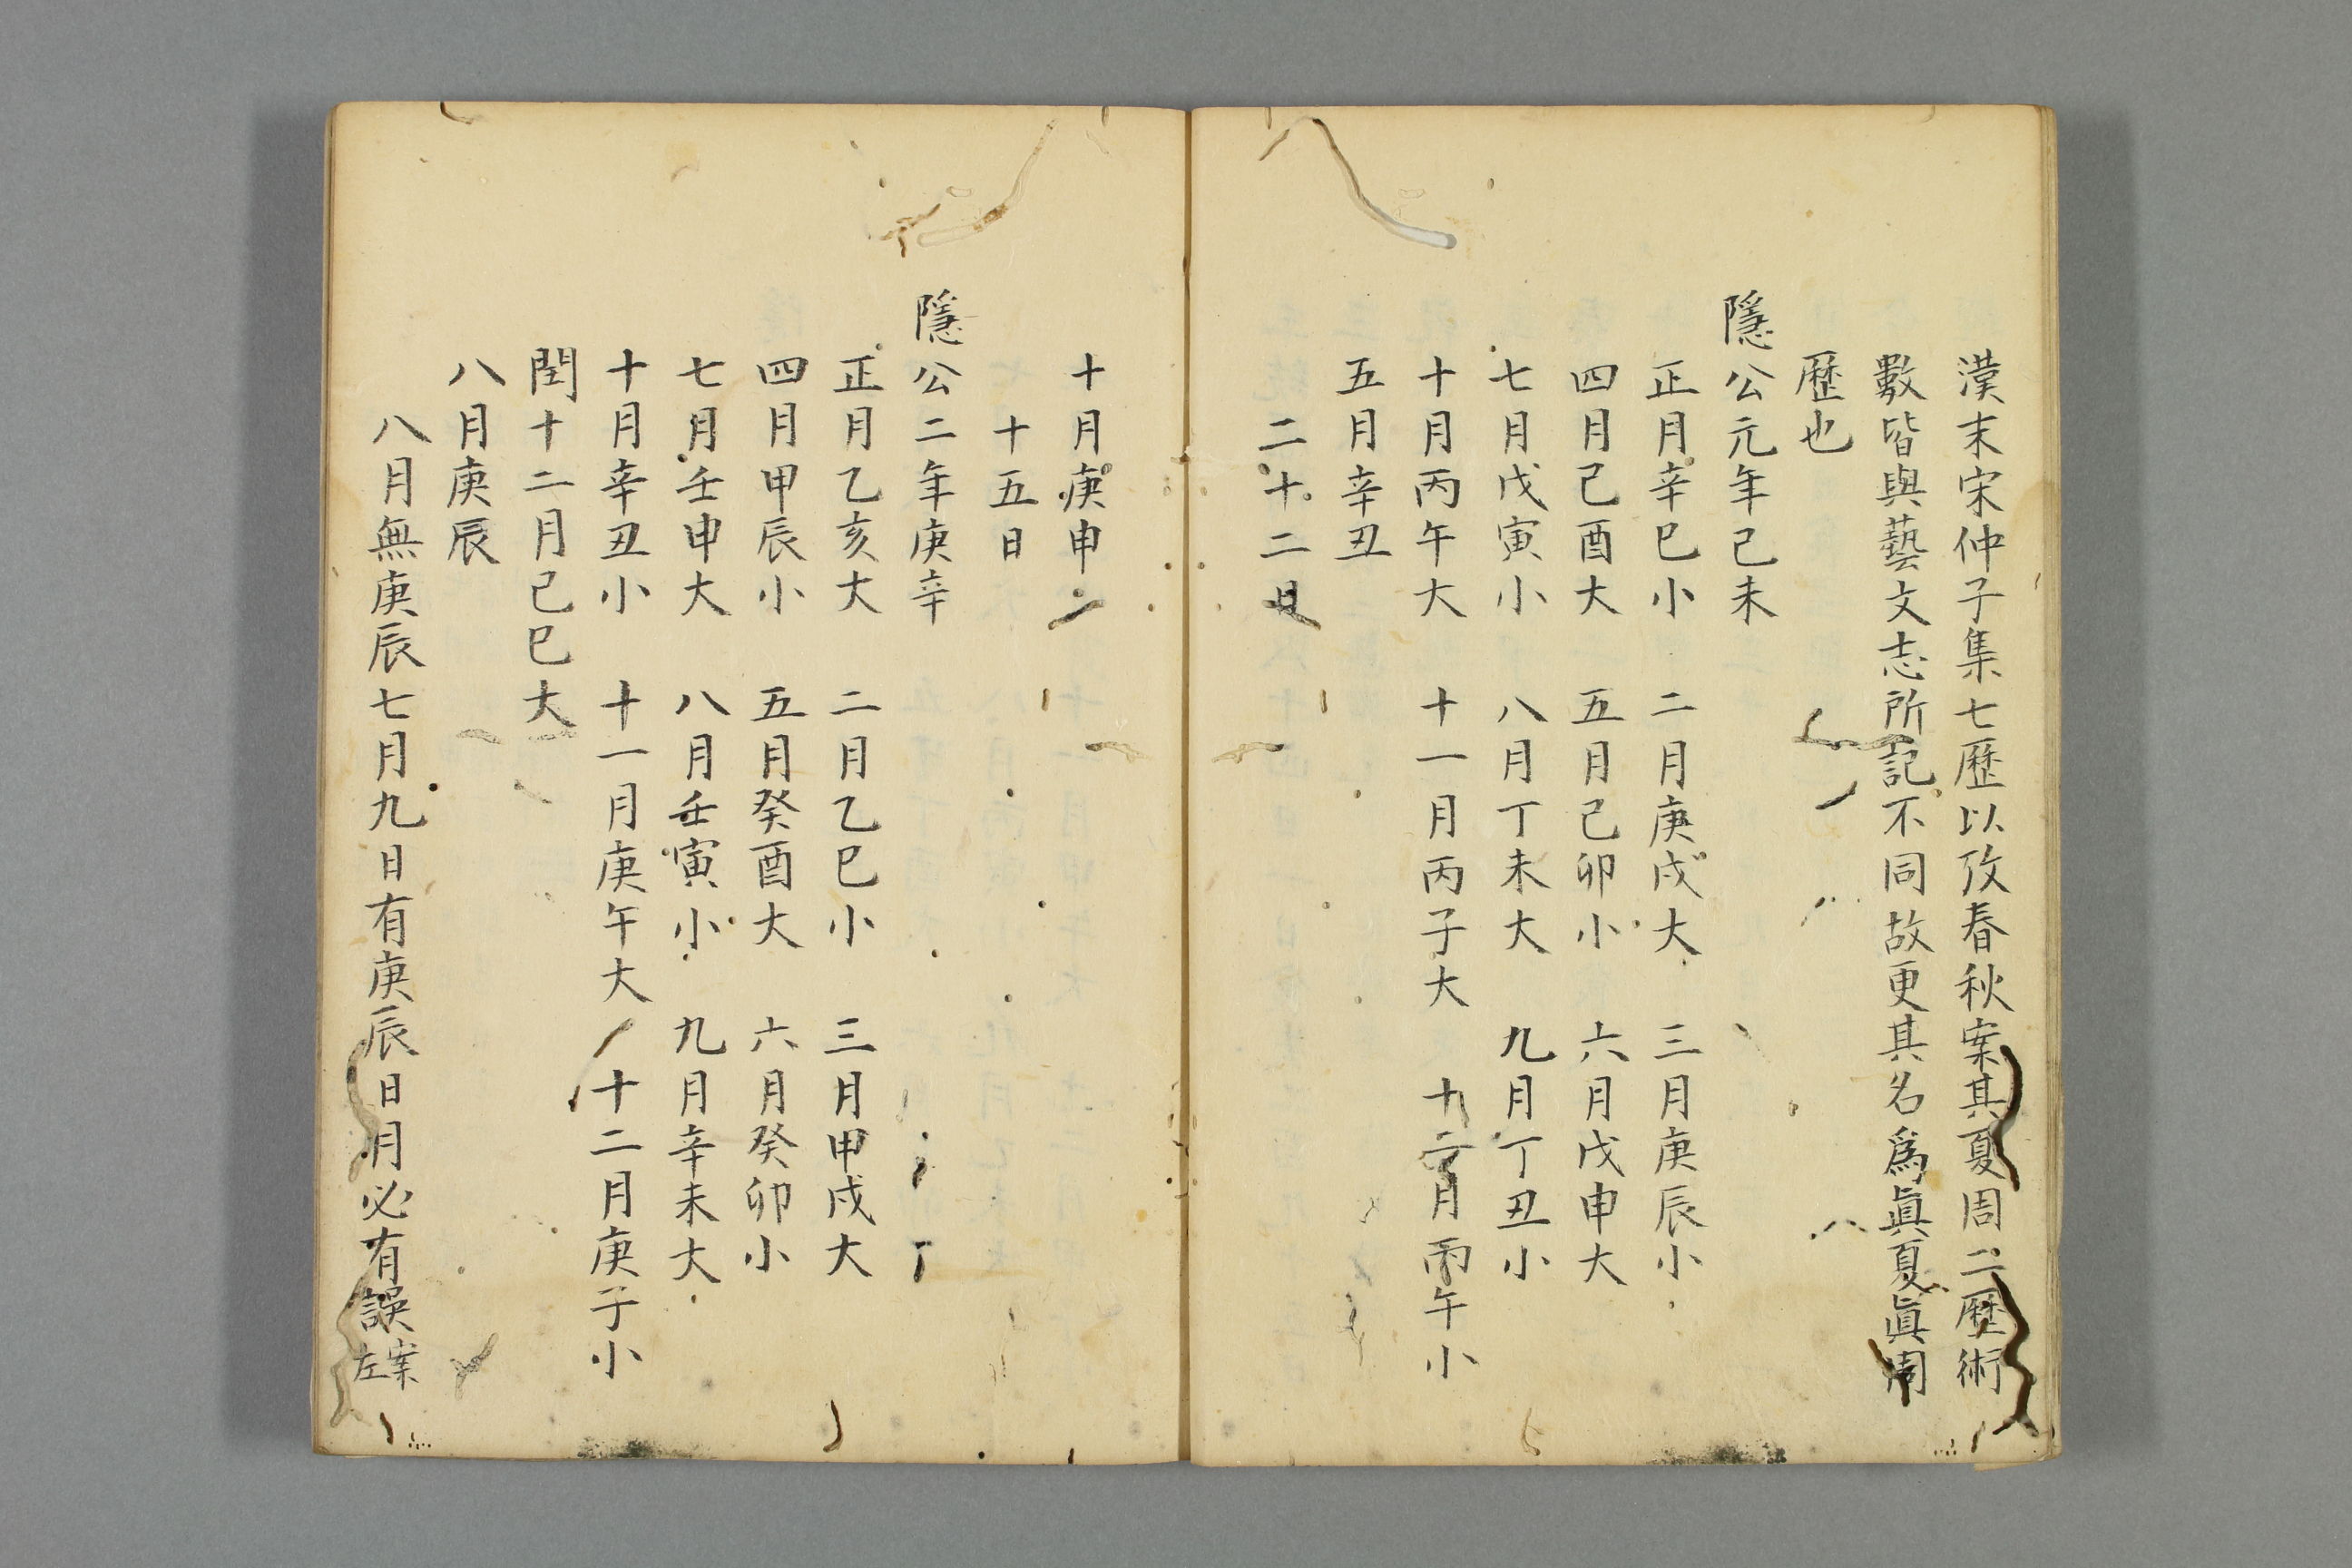 漢末宋仲子集七歷以攷春秋案其夏周二歷術
數皆與藝文志所記不同故更其名爲眞夏眞周
歷也
隱公元年己未
正月辛巳小　二月庚戌大　三月庚辰小
四月己酉大　五月己卯小　六月戊申大
七月戊寅小　八月丁未大　九月丁丑小
十月丙午大　十一月丙子大　十二月丙午小
五月辛丑
二十二日
十月庚申
十五日
隱公二年庚辛
正月乙亥大　二月乙巳小　三月甲戌大
四月甲辰小　五月癸酉大　六月癸卯小
七月壬申大　八月壬寅小　九月辛未大
十月辛丑小　十一月庚午大　十二月庚子小
閏十二月己巳大
八月庚辰
八月無庚辰七月九日有庚辰日月必有誤案
左